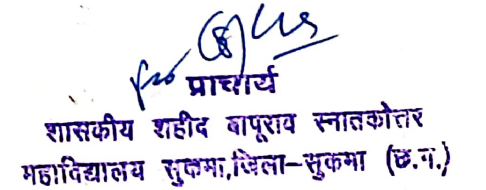 प्राचार्य
शासकीय शहीद बापूराव स्नातकोत्तर
महाविद्यालय सुकमा,जिला-सुकमा (छ.ग.)